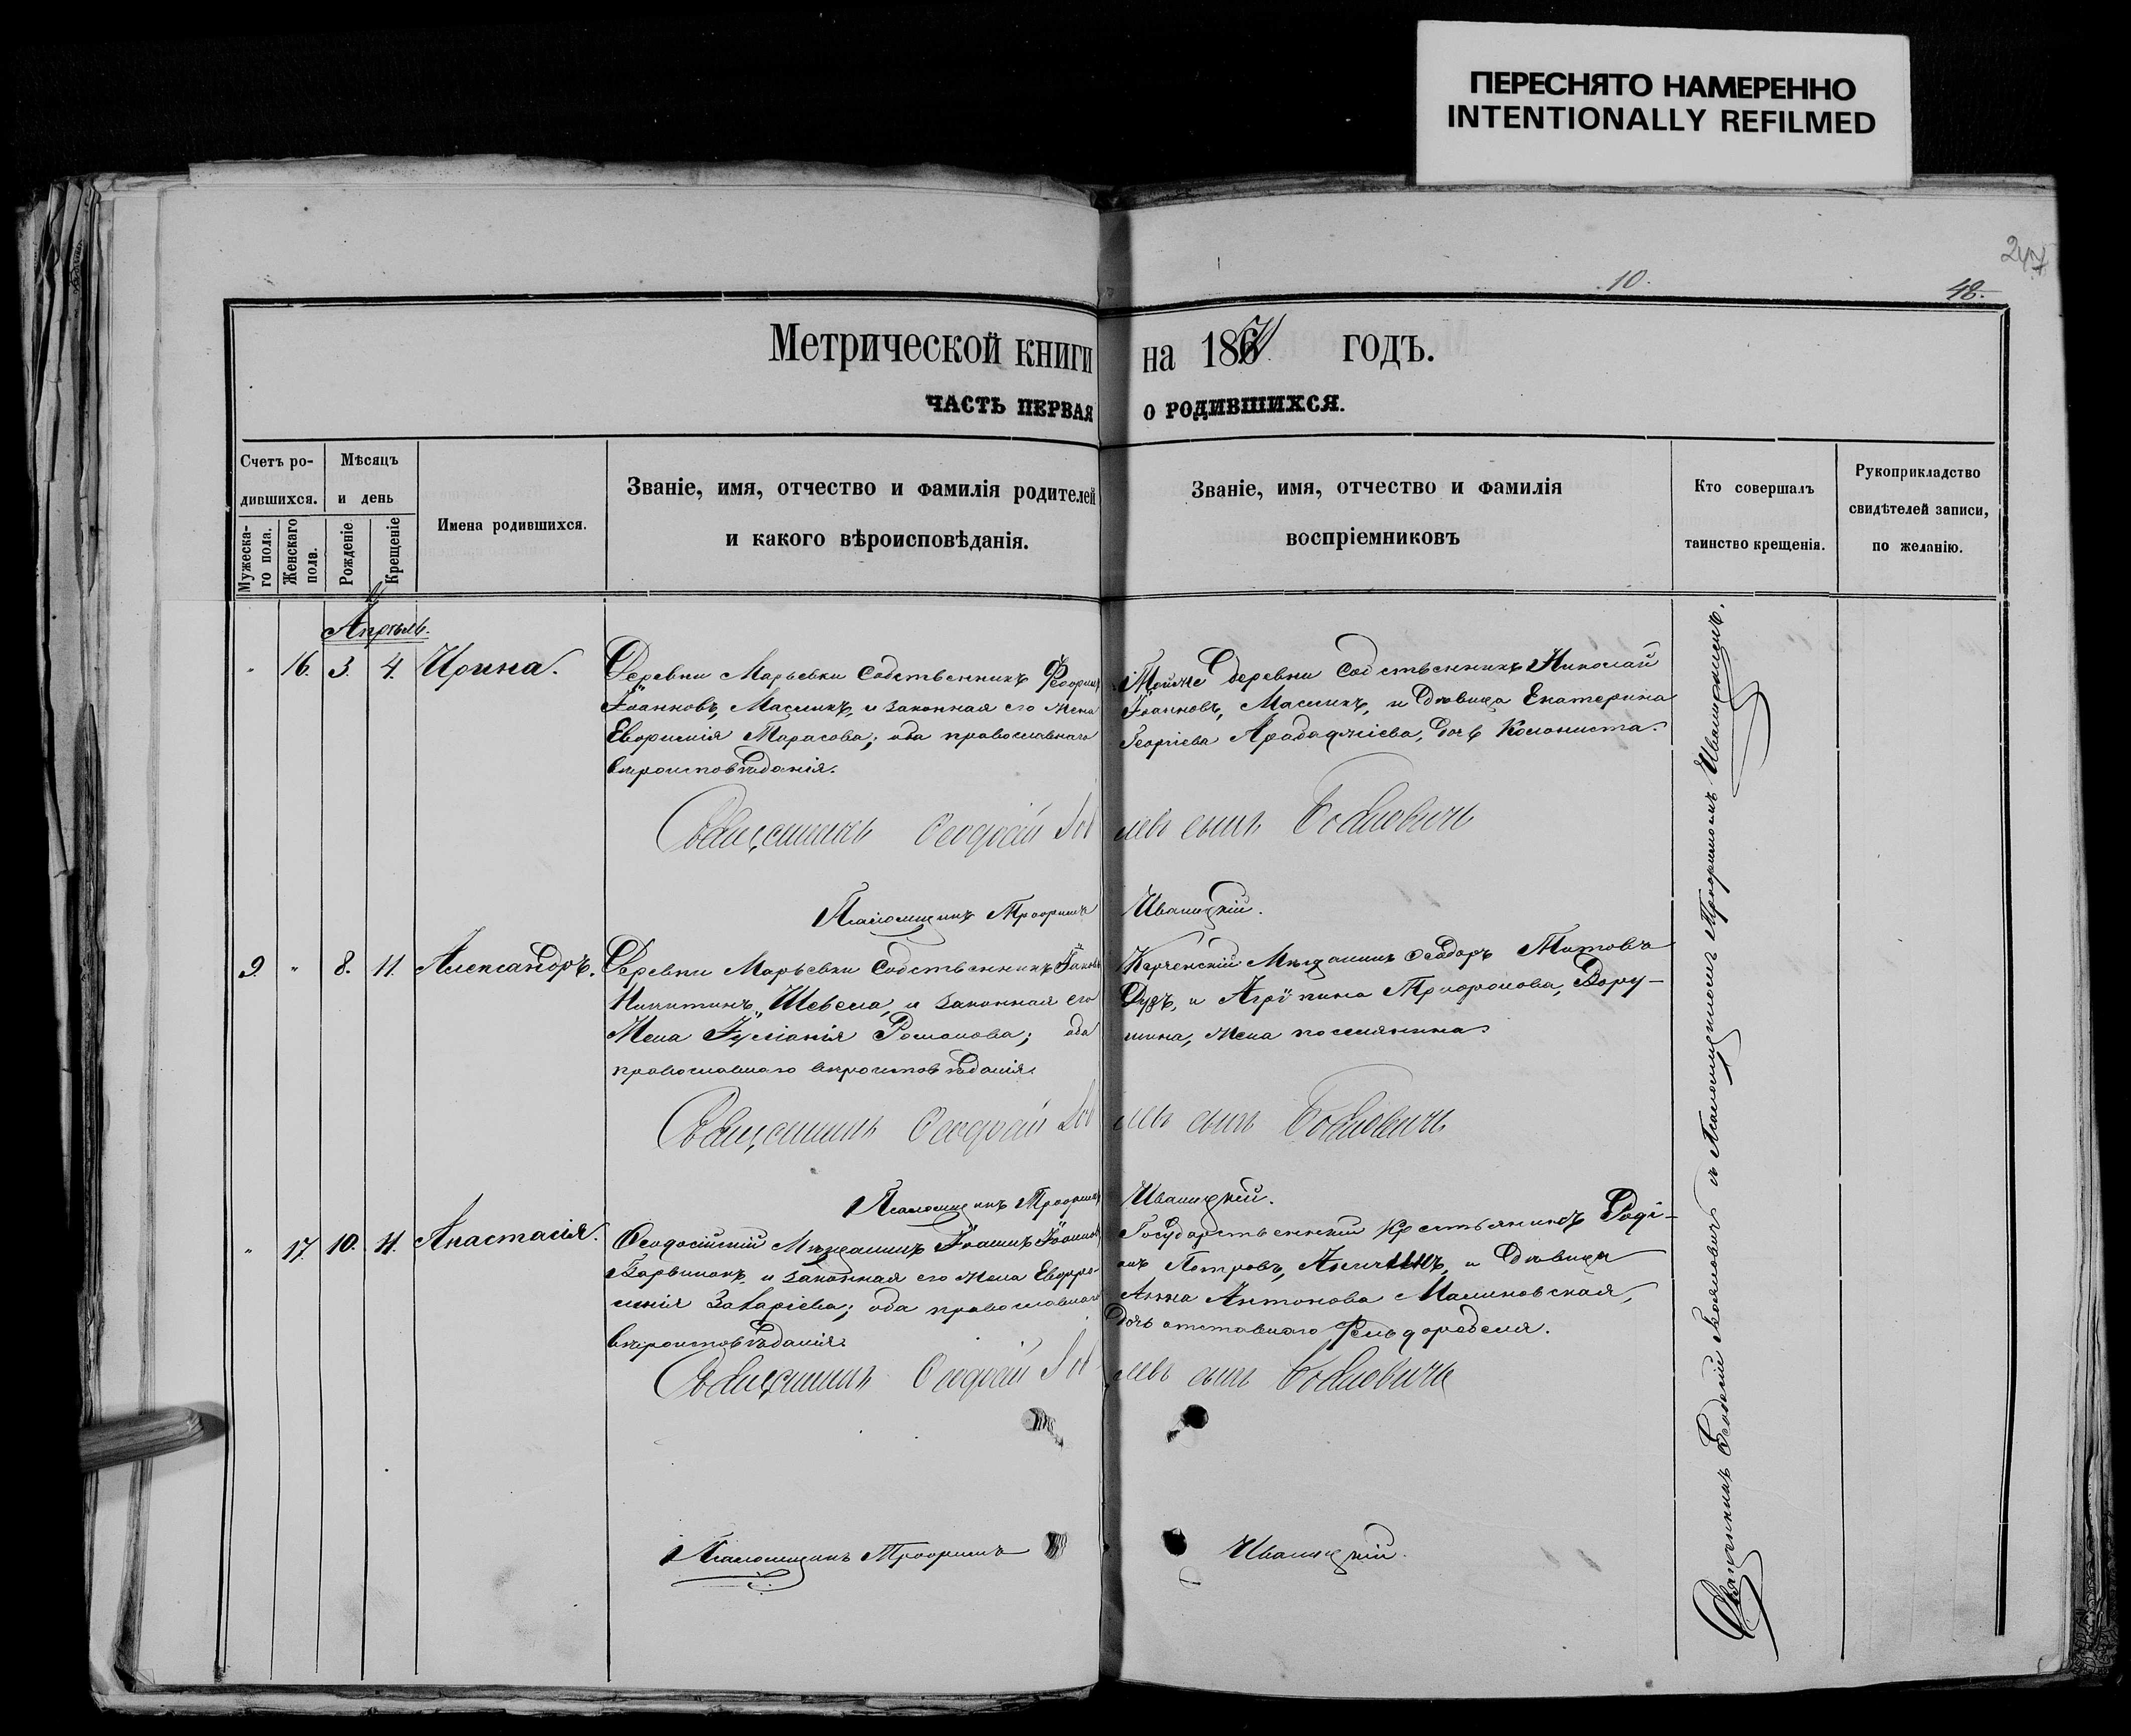 ПЕРЕСНЯТО НАМЕРЕННО
INTENTIONALLY REFILMED
247
10.
48.
Метрической книги на 1871 годъ.
ЧАСТЬ ПЕРВАЯ О РОДИВШИХСЯ.
Счетъ ро-
дившихся.
Мужеска-
го пола.
Женскаго
пола.
Мѣсяцъ
и день
Рожденіе
Крещеніе
Имена родившихся.
Званіе, имя, отчество и фамилія родителей
и какого вѣроисповѣданія.
Званіе, имя, отчество и фамилія
воспріемниковъ
Кто совершалъ
таинство крещенія.
Рукоприкладство
свидѣтелей записи,
по желанію.
Апрѣль.
" 16. 3. 4. Ирина.
Деревни Марьевки Собственникъ
Іоанновъ, Масликъ, и законная его жена
Евфимія Тарасова; оба православнаго
вѣроисповѣданія.
Тойже деревни Собственникъ Николай
Іоанновъ, Масликъ, и Дѣвица Екатерина
Георгіева Арабаджіева, дочь Колониста.
Священникъ сынъ
Псаломщикъ Трофимъ Иваницкій.
9. " 8. 11. Александръ.
Деревни Марьевки Собственникъ Іаковъ
Никитинъ, Шевель, и законная его
Жена Іуліанія Романова; оба
православнаго вѣроисповѣданія.
Керченскій Мѣщанинъ Ѳеодоръ Титовъ
Дудъ, и Агріпина Трифонова,
жена поселянина.
Священникъ сынъ
Псаломщикъ Трофимъ Иваницкій.
" 17. 10. 11. Анастасія.
Ѳеодосійскій Мѣщанинъ Іоаннъ Іоанновъ
и законная его жена Евфро-
синія Захаріева; оба православнаго
вѣроисповѣданія.
Государственный Крестьянинъ Роді-
онъ Петровъ, и Дѣвица
Анна Антонова Малиновская,
дочь отставнаго Фельдфебеля.
Священникъ сынъ
Псаломщикъ Трофимъ Иваницкій.
Священникъ Ѳеодосій и Псаломщикомъ Трофимомъ Иваницкимъ.